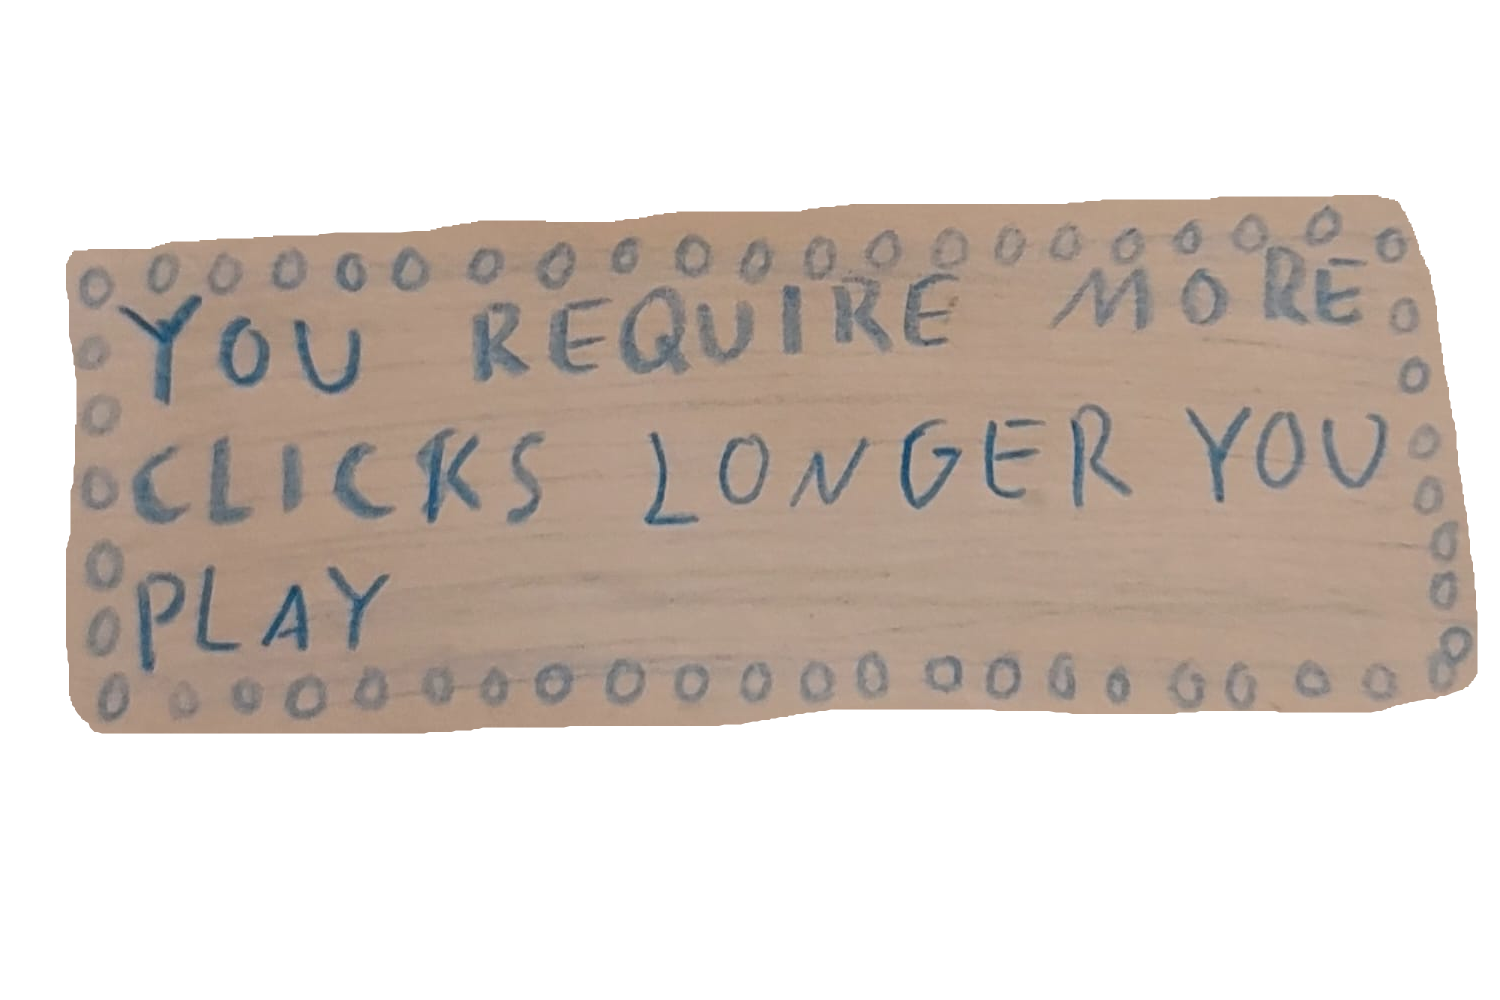 YOU REQUIRE MORE
CLICKS LONGER YOU
PLAY